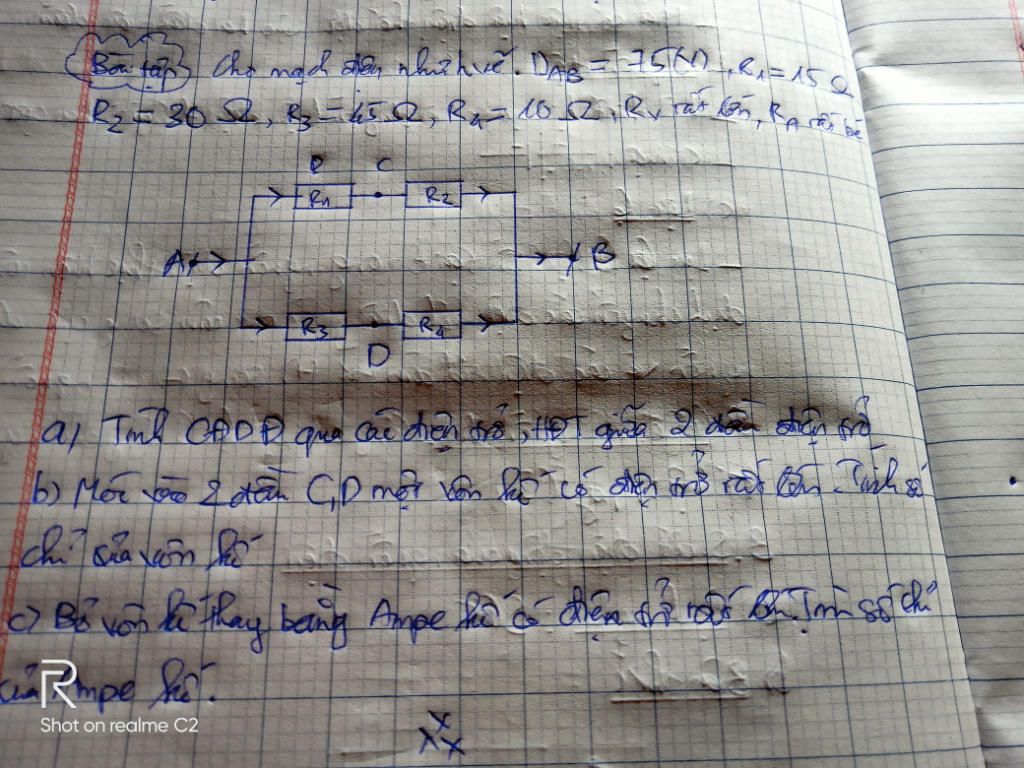 Bài tập Cho mạch điện như hình vẽ. UAB = 75(V), R1 = 15 Ω
R2 = 30 Ω, R3 = 15 Ω, R4 = 10 Ω, RV rất lớn, RA rất bé
R C
R1 R2
A B
R3 R4
D
a) Tính CĐDĐ qua các điện trở, HĐT giữa 2 đầu điện trở
b) Mắc vào 2 đầu C,D một vôn kế có điện trở rất lớn. Tính số
chỉ của vôn kế
c) Bỏ vôn kế thay bằng Ampe kế có điện trở rất Tính số chỉ
của Ampe kế.
R
Shot on realme C2